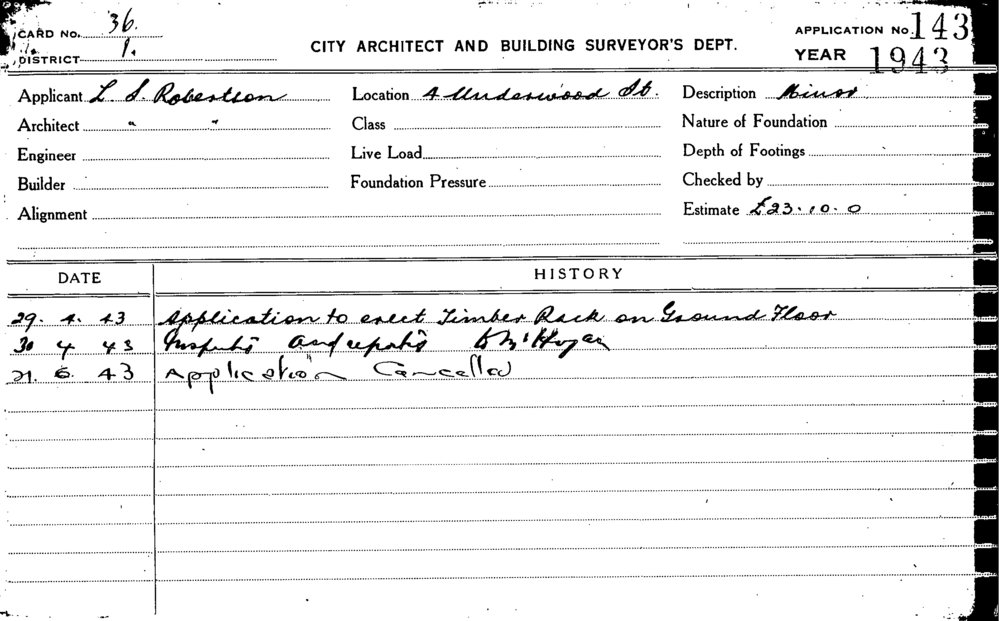 CARD No. 36.
DISTRICT 1.
CITY ARCHITECT AND BUILDING SURVEYOR'S DEPT.
APPLICATION No. 143
YEAR 1943
Applicant L. S. Robertson Location 4 Underwood St. Description Minor
Architect " " Class Nature of Foundation
Engineer Live Load Depth of Footings
Builder Foundation Pressure Checked by
Alignment Estimate £23.10.0
DATE HISTORY
29. 4. 43 Application to erect Timber Rack on Ground Floor
30 4 43
21. 6. 43 Application Cancelled